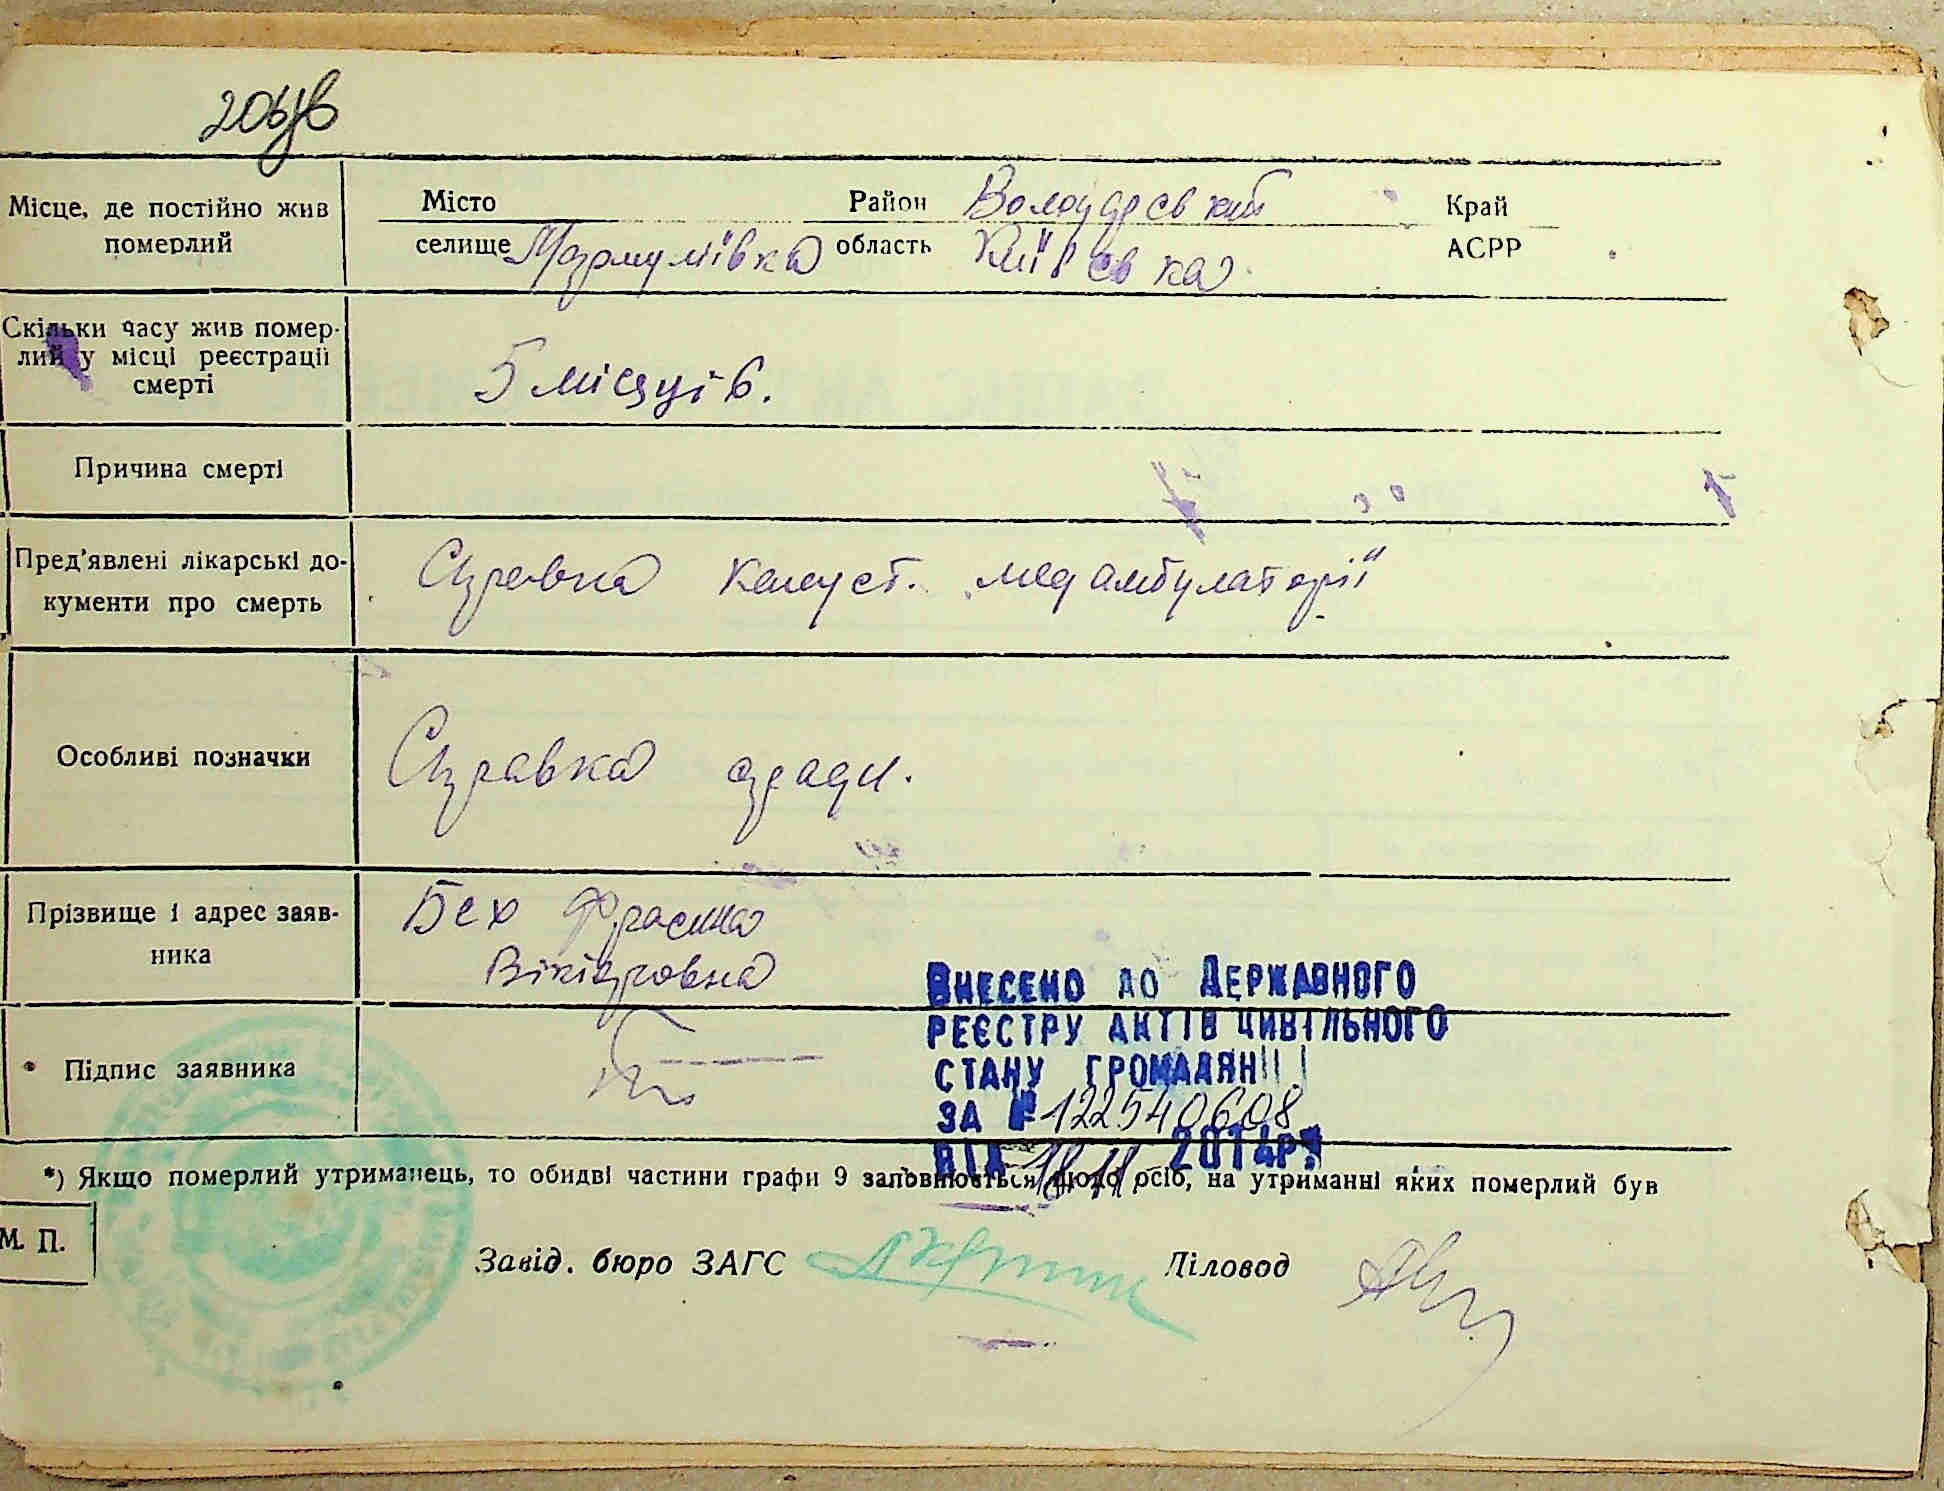 206зв
Місце, де постійно жив померлий
Місто Район Володарський Край
селище область Київська АСРР
Скільки часу жив помер-
лий у місці реєстрації
смерті
5 місяців.
Причина смерті
Пред'явлені лікарські до-
кументи про смерть
Справка медамбулаторії
Особливі позначки
Справка
Прізвище і адрес заяв-
ника
Бех Фросина
Вікторовна
Підпис заявника
ВНЕСЕНО ДО ДЕРЖАВНОГО
РЕЄСТРУ АКТІВ ЦИВІЛЬНОГО
СТАНУ ГРОМАДЯН
ЗА № 122540608
ВІД 18.11. 2014р.
*) Якщо померлий утриманець, то обидві частини графи 9 заповнюється щодо осіб, на утриманні яких померлий був
М. П.
Завід. бюро ЗАГС Діловод